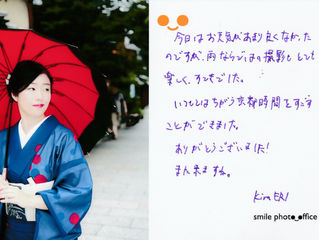 今日はお天気があまり良くなかった
のですが、雨ならではの撮影も、とても
楽しく、すごせました。
いつもとはちがう京都時間をすごす
ことができました。
ありがとうございました!
また来ますね。
Kim ERI
smile photo_office